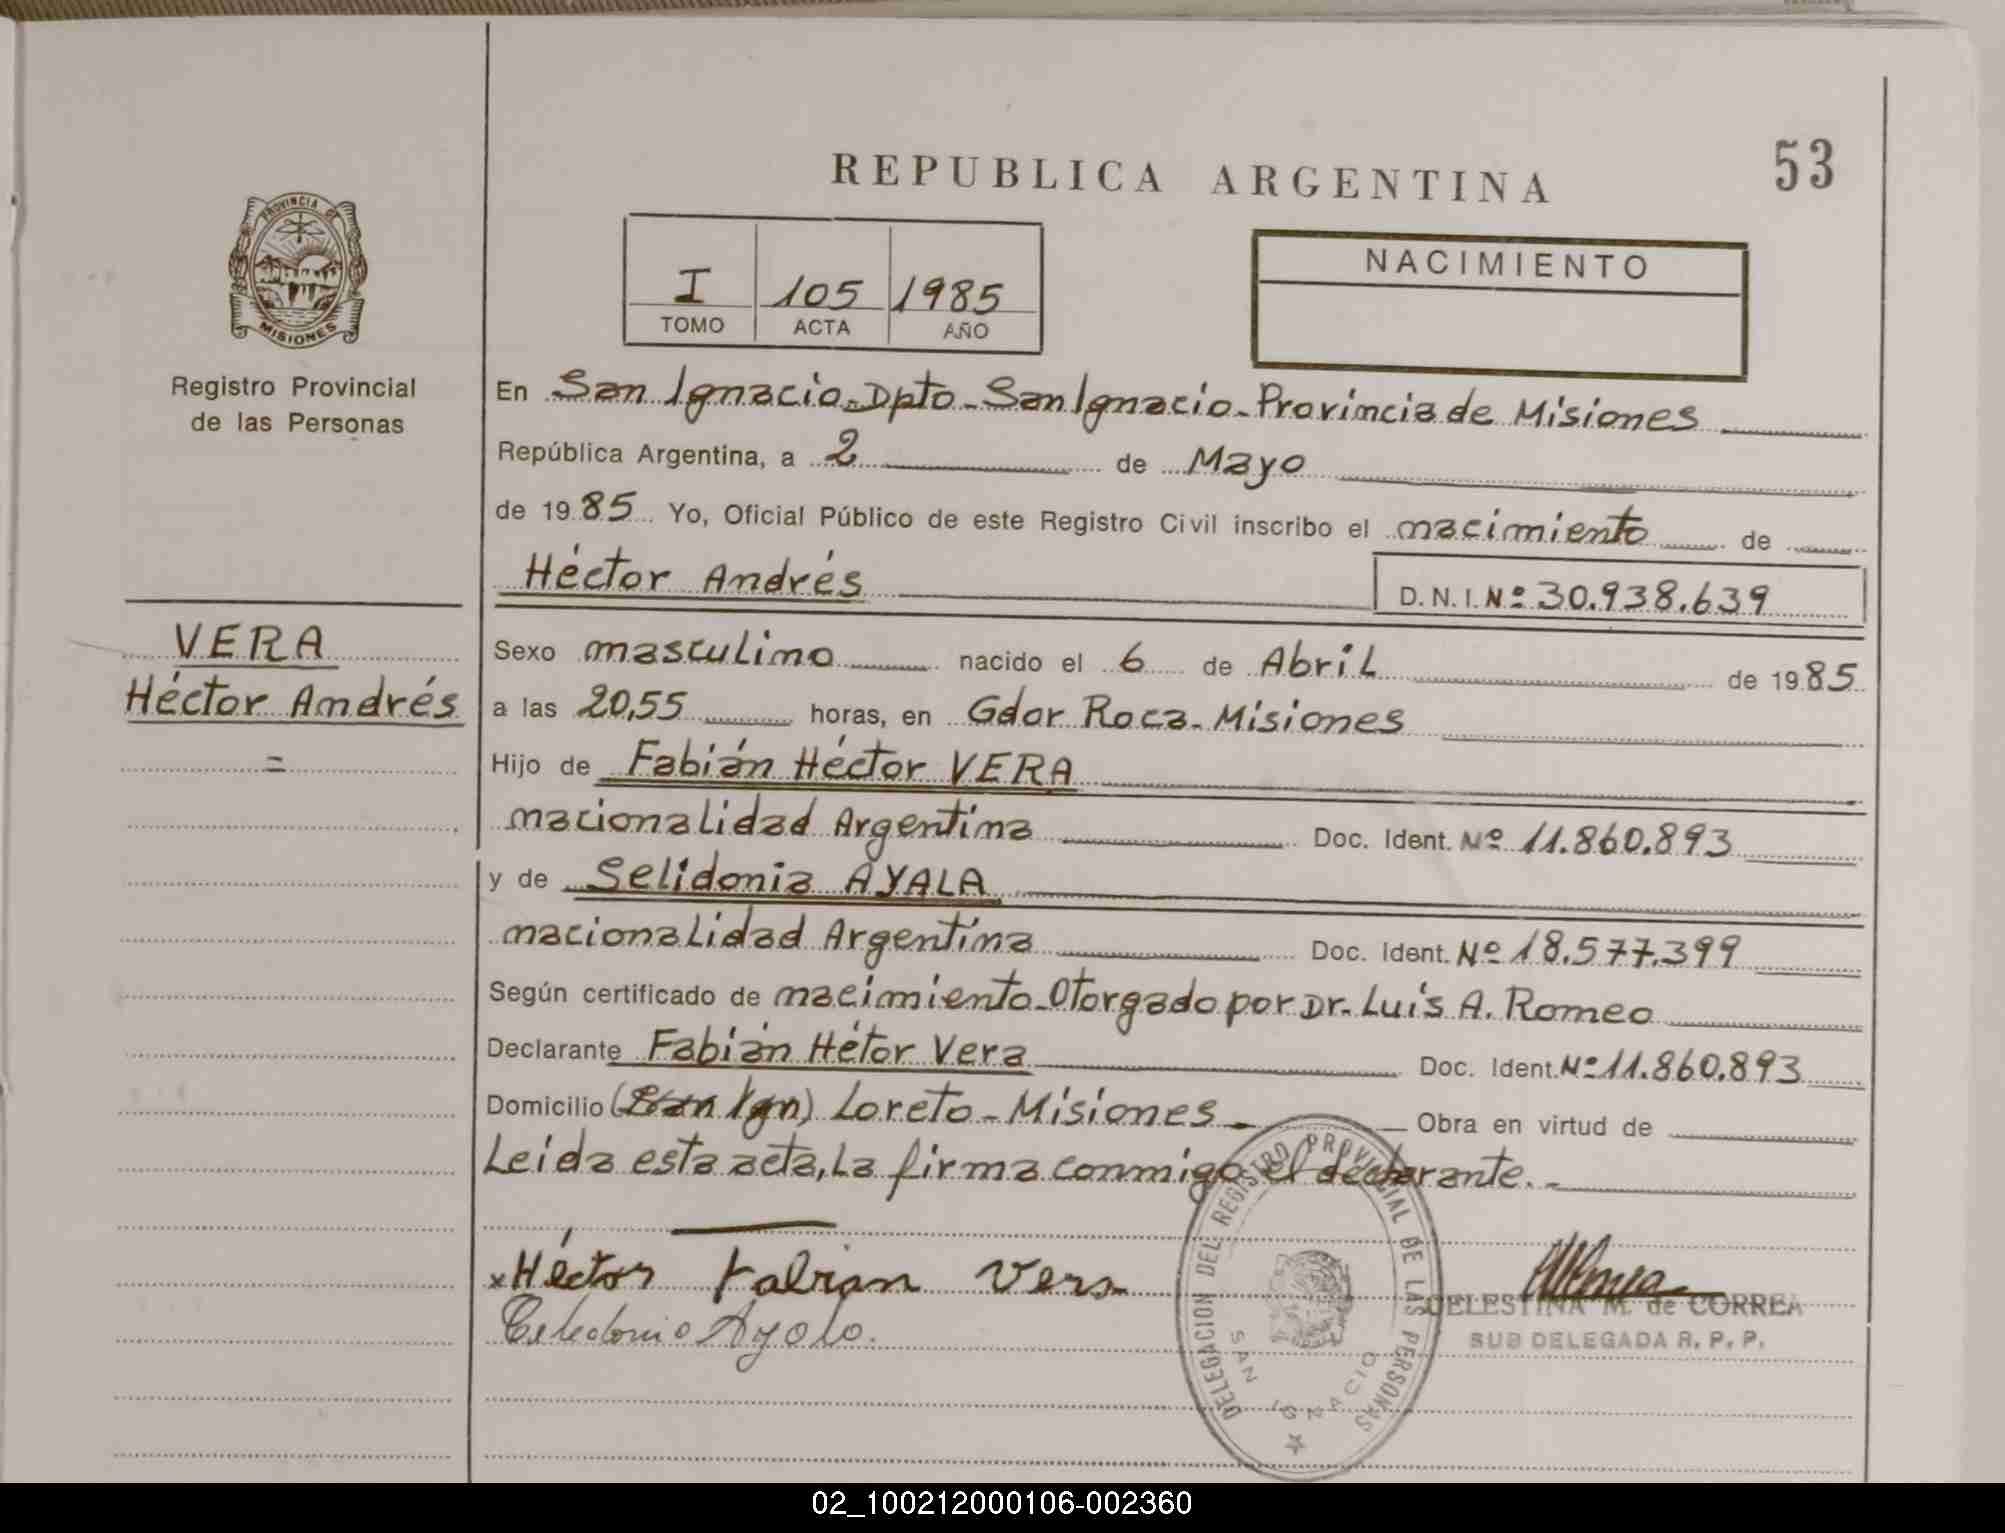 REPUBLICA ARGENTINA
53
PROVINCIA DE
MISIONES
Registro Provincial
de las Personas
I 105 1985
TOMO ACTA AÑO
NACIMIENTO
En San Ignacio-Dpto-San Ignacio-Provincia de Misiones
República Argentina, a 2 de Mayo
de 1985 Yo, Oficial Público de este Registro Civil inscribo el nacimiento de
Héctor Andrés
D.N.I. Nº 30.938.639
VERA
Héctor Andrés
=
Sexo masculino nacido el 6 de Abril de 1985
a las 20,55 horas, en Gdor Roca-Misiones
Hijo de Fabián Héctor VERA
nacionalidad Argentina Doc. Ident. Nº 11.860.893
y de Selidonia AYALA
nacionalidad Argentina Doc. Ident. Nº 18.577.399
Según certificado de nacimiento-Otorgado por Dr. Luis A. Romeo
Declarante Fabián Hétor Vera Doc. Ident. Nº 11.860.893
Domicilio (San Ign) Loreto-Misiones- Obra en virtud de
Leída esta acta, La firma conmigo el declarante.-
x Héctor Fabian Vera
Celedonio Ayala.
DELEGACION DEL REGISTRO PROVINCIAL DE LAS PERSONAS
SAN IGNACIO
CELESTINA M. de CORREA
SUB DELEGADA R. P. P.
02_100212000106-002360